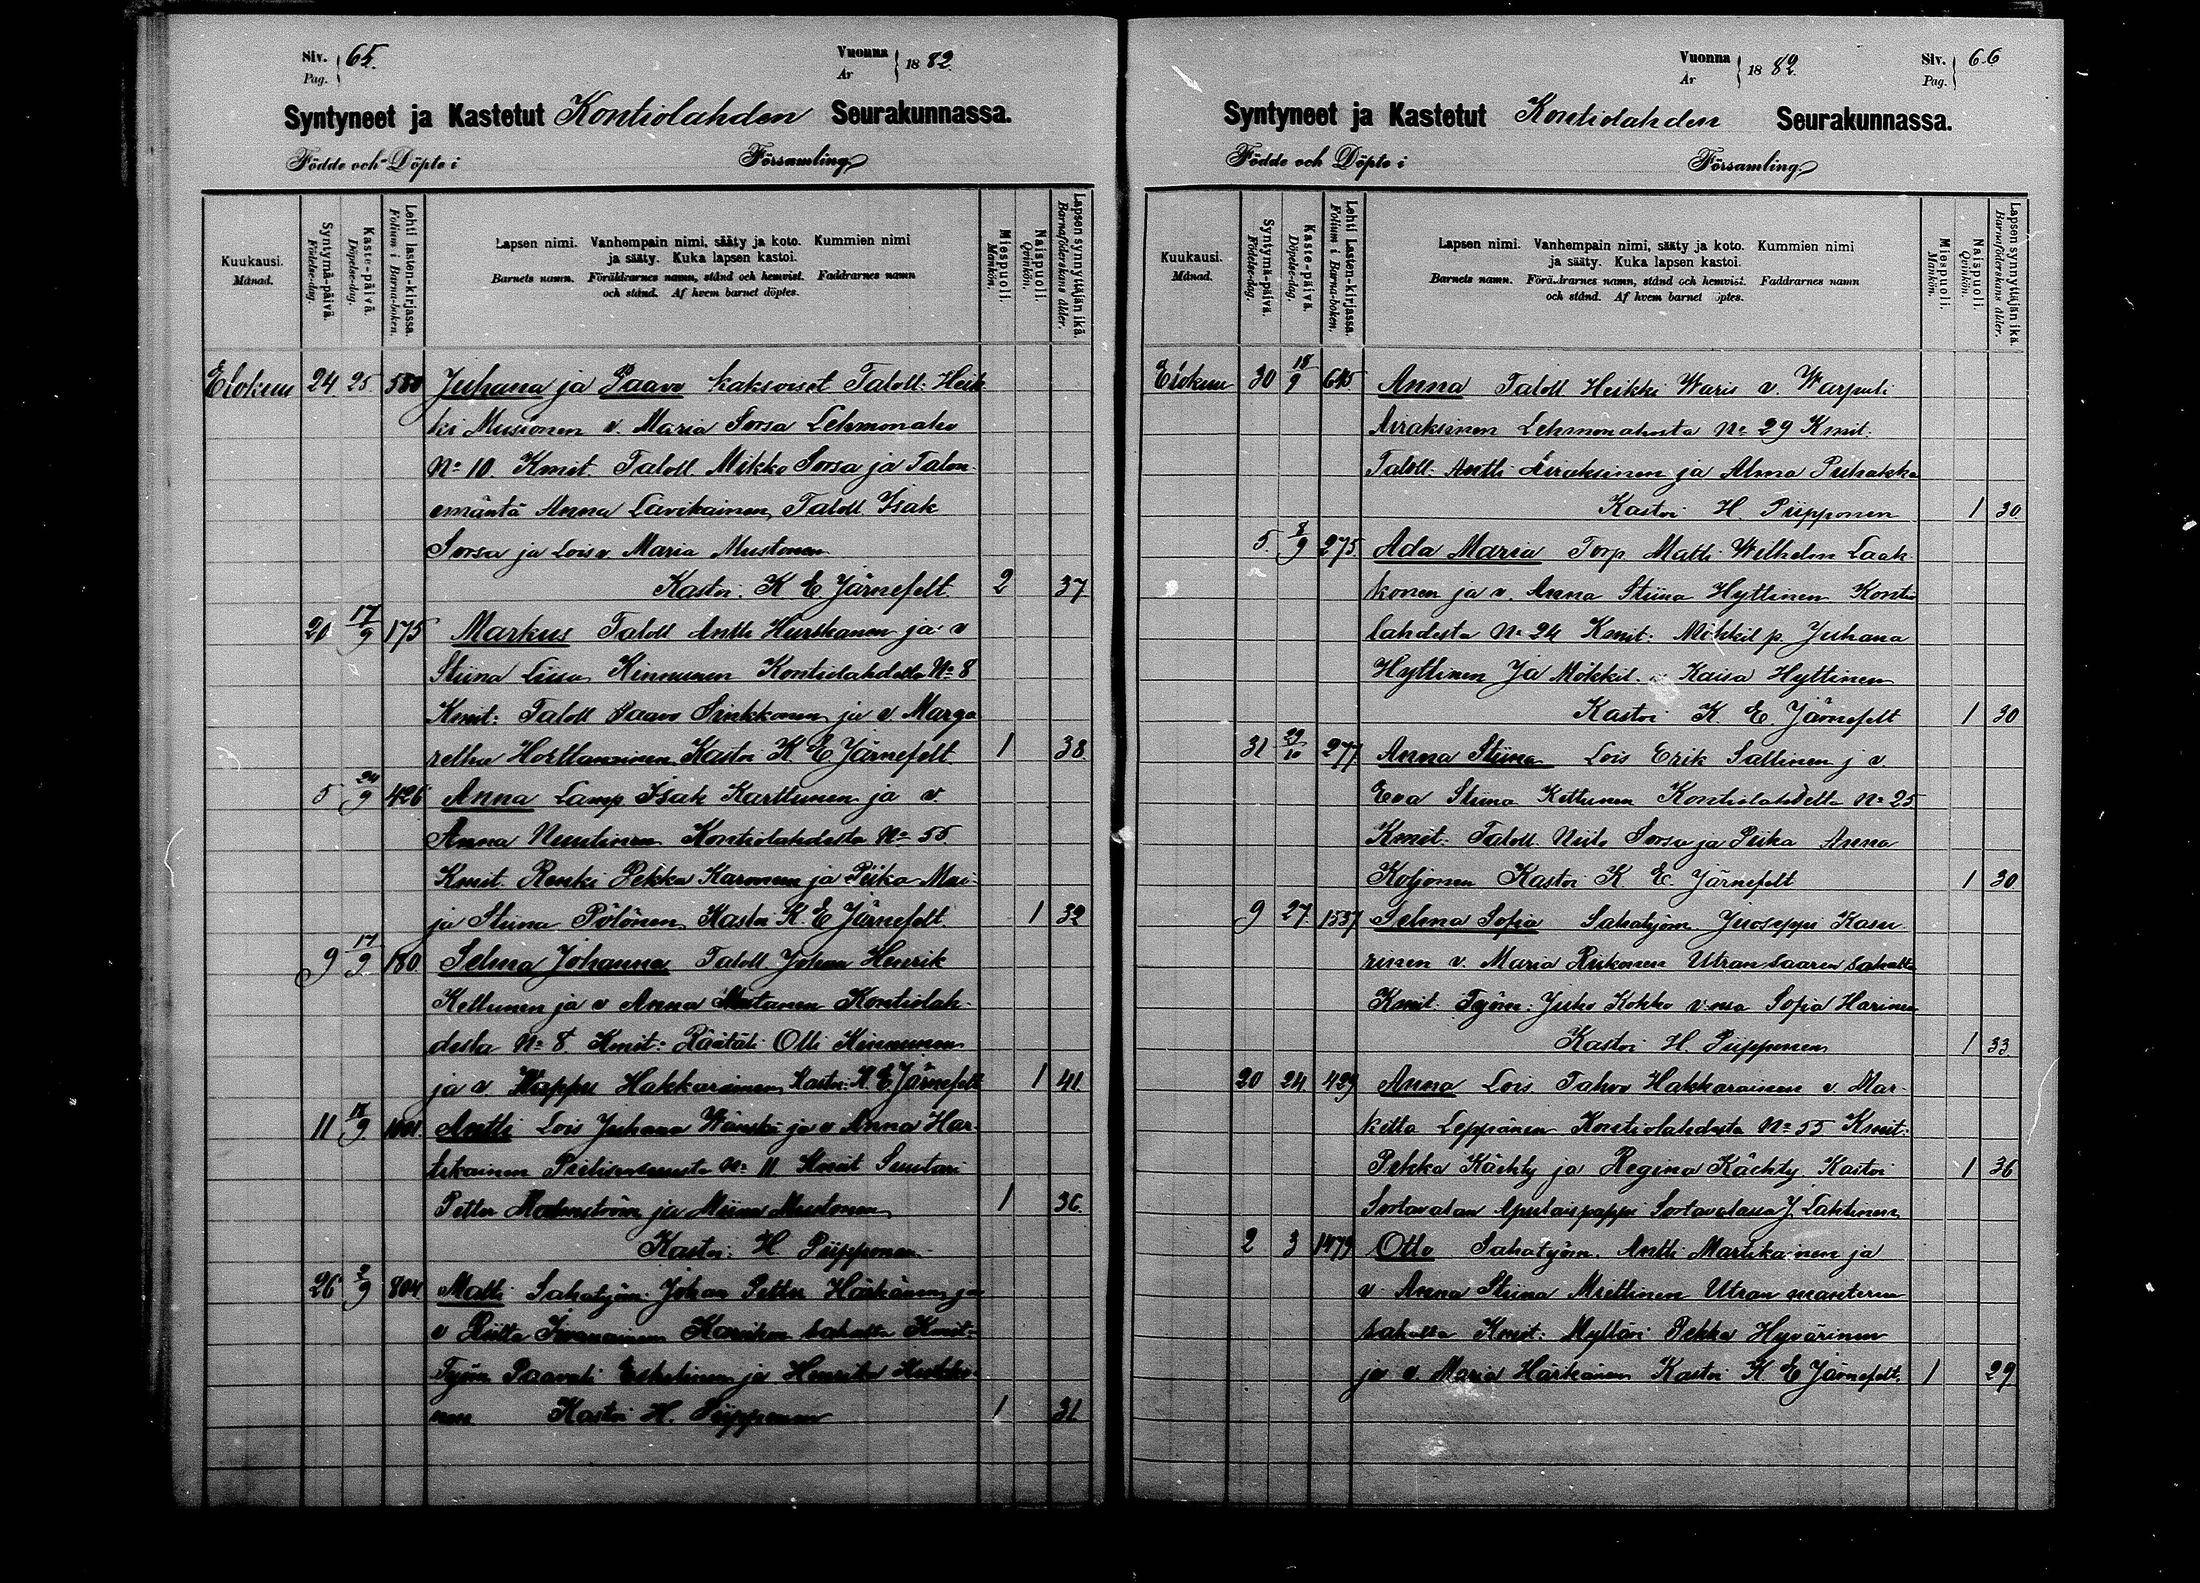 Siv. Pag. 65. Vuonna Ar 1882.
Syntyneet ja Kastetut Kontiolahden Seurakunnassa.
Födde och Döpte i Församling
Kuukausi. Månad.
Syntymä-päivä. Födelse-dag.
Kaste-päivä Döpelse-dag.
Lehti lasten-kirjassa. Folium i Barna-boken.
Lapsen nimi. Vanhempain nimi, sääty ja koto. Kummien nimi
ja sääty. Kuka lapsen kastoi.
Barnets namn. Föräldrarnes namn, stånd och hemvist. Faddrarnes namn
och stånd. Af hvem barnet döptes.
Miespuoli. Mankön.
Naispuoli. Qvinkön.
Lapsen synnyttäjän ikä. Barnaföderskans ålder.
Elokuu 24 25 580 Juhana ja Paavo kaksoiset Taloll. Heik
ki Musionen v. Maria Sorsa Lehmonaho
No 10. Kmit. Taloll. Mikko Sorsa ja Talon
emäntä Anna Lavikainen, Taloll Isak
Sorsa ja Lois v. Maria Mustonen
Kastoi. K E. Järnefelt 2 37
21 17/9 175 Markus Taloll Antti Hurskanen ja v
Stiina Liisa Kinnunen Kontiolahdella No 8
Kmit: Taloll Paavo Sinkkonen ja v. Marga
retha Horttanainen Kastoi K. E. Järnefelt 1 38.
5 24/9 426 Anna Lamp. Isak Karttunen ja v.
Anna Nuutinen Kontiolahdesta No 55.
Kmit. Renki Pekka Karonen ja Piika Mai-
ja Stiina Pölönen, Kastoi K. E Järnefelt. 1 32
9 17/9 180. Selma Johanna Taloll. Johan Henrik
Kettunen ja v Anna Mustonen Kontiolah-
desta No 8. Kmit: Räätäli Otti Kinnunen
ja v. Wappu Hakkarainen Kastoi: K. E Järnefelt 1 41
11 18/9 Antti Lois Juhana Wänskä ja v Anna Har-
No 11. Kmit Suutari
Petter ja Miina Mustonen 1 36.
Kastoi: H Piipponen
26 2/9 804 Matti Sahatyöm: Johan Petter Härkönen ja
v Riitta Iwanainen sahalta Kmit:
Työm Paavali Eskelinen ja Henrika
nen Kastoi H. Piipponen 1 31
Vuonna Ar 1882. Siv. Pag. 66
Syntyneet ja Kastetut Kontiolahden Seurakunnassa.
Födde och Döpte i Församling
Kuukausi. Månad.
Syntymä-päivä. Födelse-dag.
Kaste-päivä. Döpelse-dag.
Lehti Lasten-kirjassa. Folium i Barna-boken.
Lapsen nimi. Vanhempain nimi, sääty ja koto. Kummien nimi
ja sääty. Kuka lapsen kastoi.
Barnets namn. Föräldrarnes namn, stånd och hemvist. Faddrarnes namn
och stånd. Af hvem barnet döptes.
Miespuoli. Mankön.
Naispuoli. Qvinkön.
Lapsen synnyttäjän ikä. Barnaföderskans ålder.
Elokuu 30 18/9 645 Anna Taloll Heikki Waris v. Warpuli
Airaksinen Lehmonahosta No 29 Kmit.
Taloll. Antti Airaksinen ja Alma Puhakka
Kastoi H. Piipponen 1 30
5. 8/9 275. Ada Maria Torp. Matti Wilhelm Laak-
konen ja v. Anna Stiina Hyttinen Kontio
lahdesta No 24 Kmit: Mökkil p. Juhana
Hyttinen Ja Mökkil. Kaisa Hyttinen
Kastoi K E Järnefelt 1 30
31 29/10 277 Anna Stiina Lois Erik Saltinen j v.
Eva Stiina Kettunen Kontiolahdella No 25
Kmit: Taloll. Niilo Sorsa ja Piika Anna
Koljonen Kastoi K E. Järnefelt 1 30
9 27. 1537 Selma Sofia Sahatyöm Juoseppi Kasu-
rinen v. Maria Riikonen Utran saaren sahalta
Kmit: Työm: Juho Kokko v:nsa Sofia Harinen
Kastoi H. Piipponen 1 33
20 24 429 Anna Lois Tahvo Hakkarainen v. Mar-
ketta Leppänen Kontiolahdesta No 55 Kmit:
Pekka Kächty ja Regina Kächty Kastoi 1 36
Sortavalan Apulaispappi Sortavalassa J. Lahtinen
2 3 1479 Otto Sahatyöm. Antti Martikainen ja
v. Anna Stiina Miettinen Utran manteren
sahalla Kmit: Mylläri Pekka Hyvärinen
ja v. Maria Härkönen Kastoi K E Järnefelt. 1 29